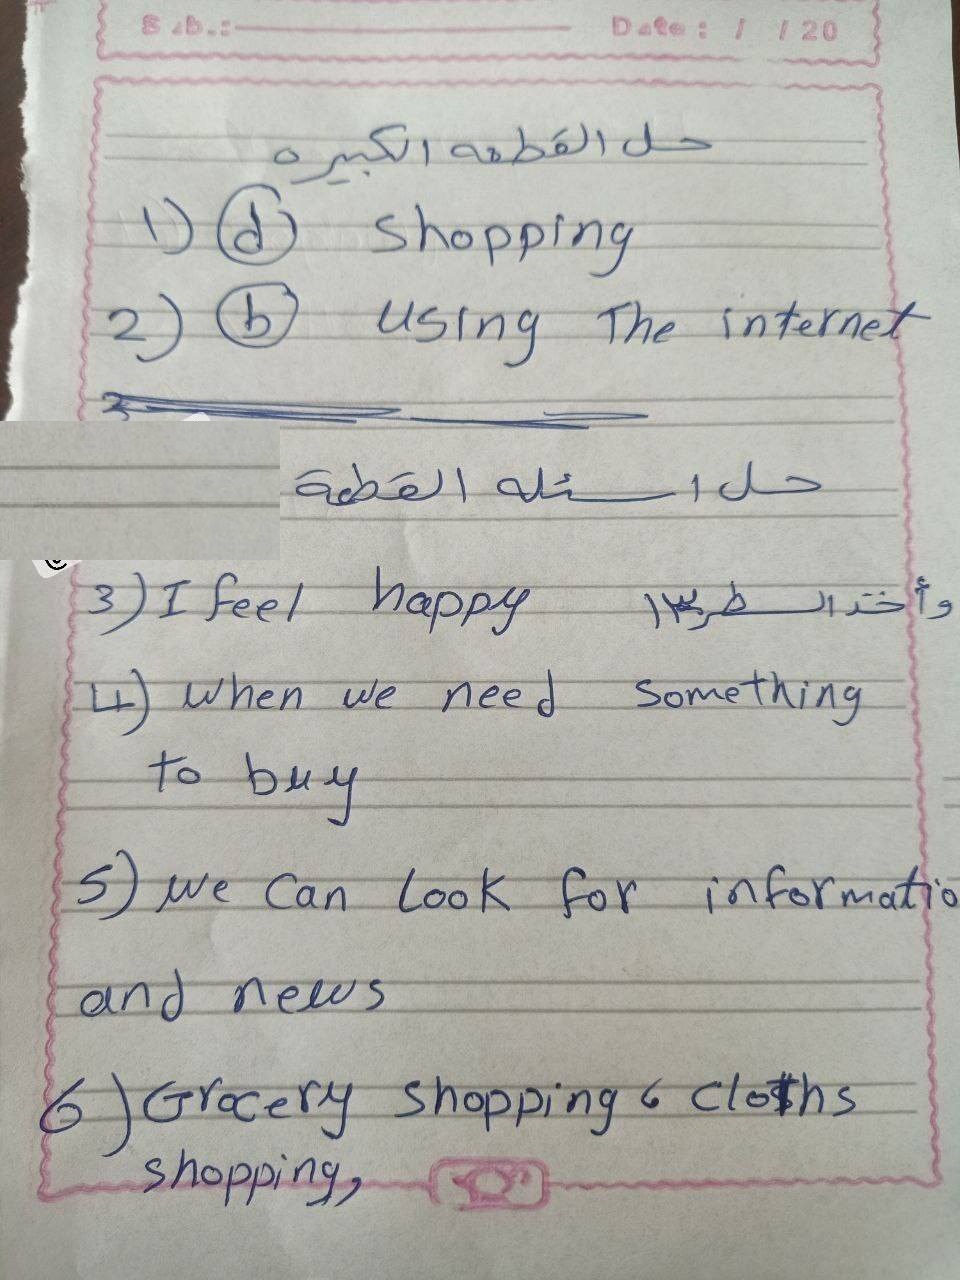 Sub.: Date: / / 20
حل القطعه الكبيره
1) d Shopping
2) b Using The internet
حل اسئله القطعة
3) I feel happy وأخذ السطر ١٣
4) when we need something
to buy
5) we can look for informatio
and news
6) Grocery shopping , cloths
shopping,